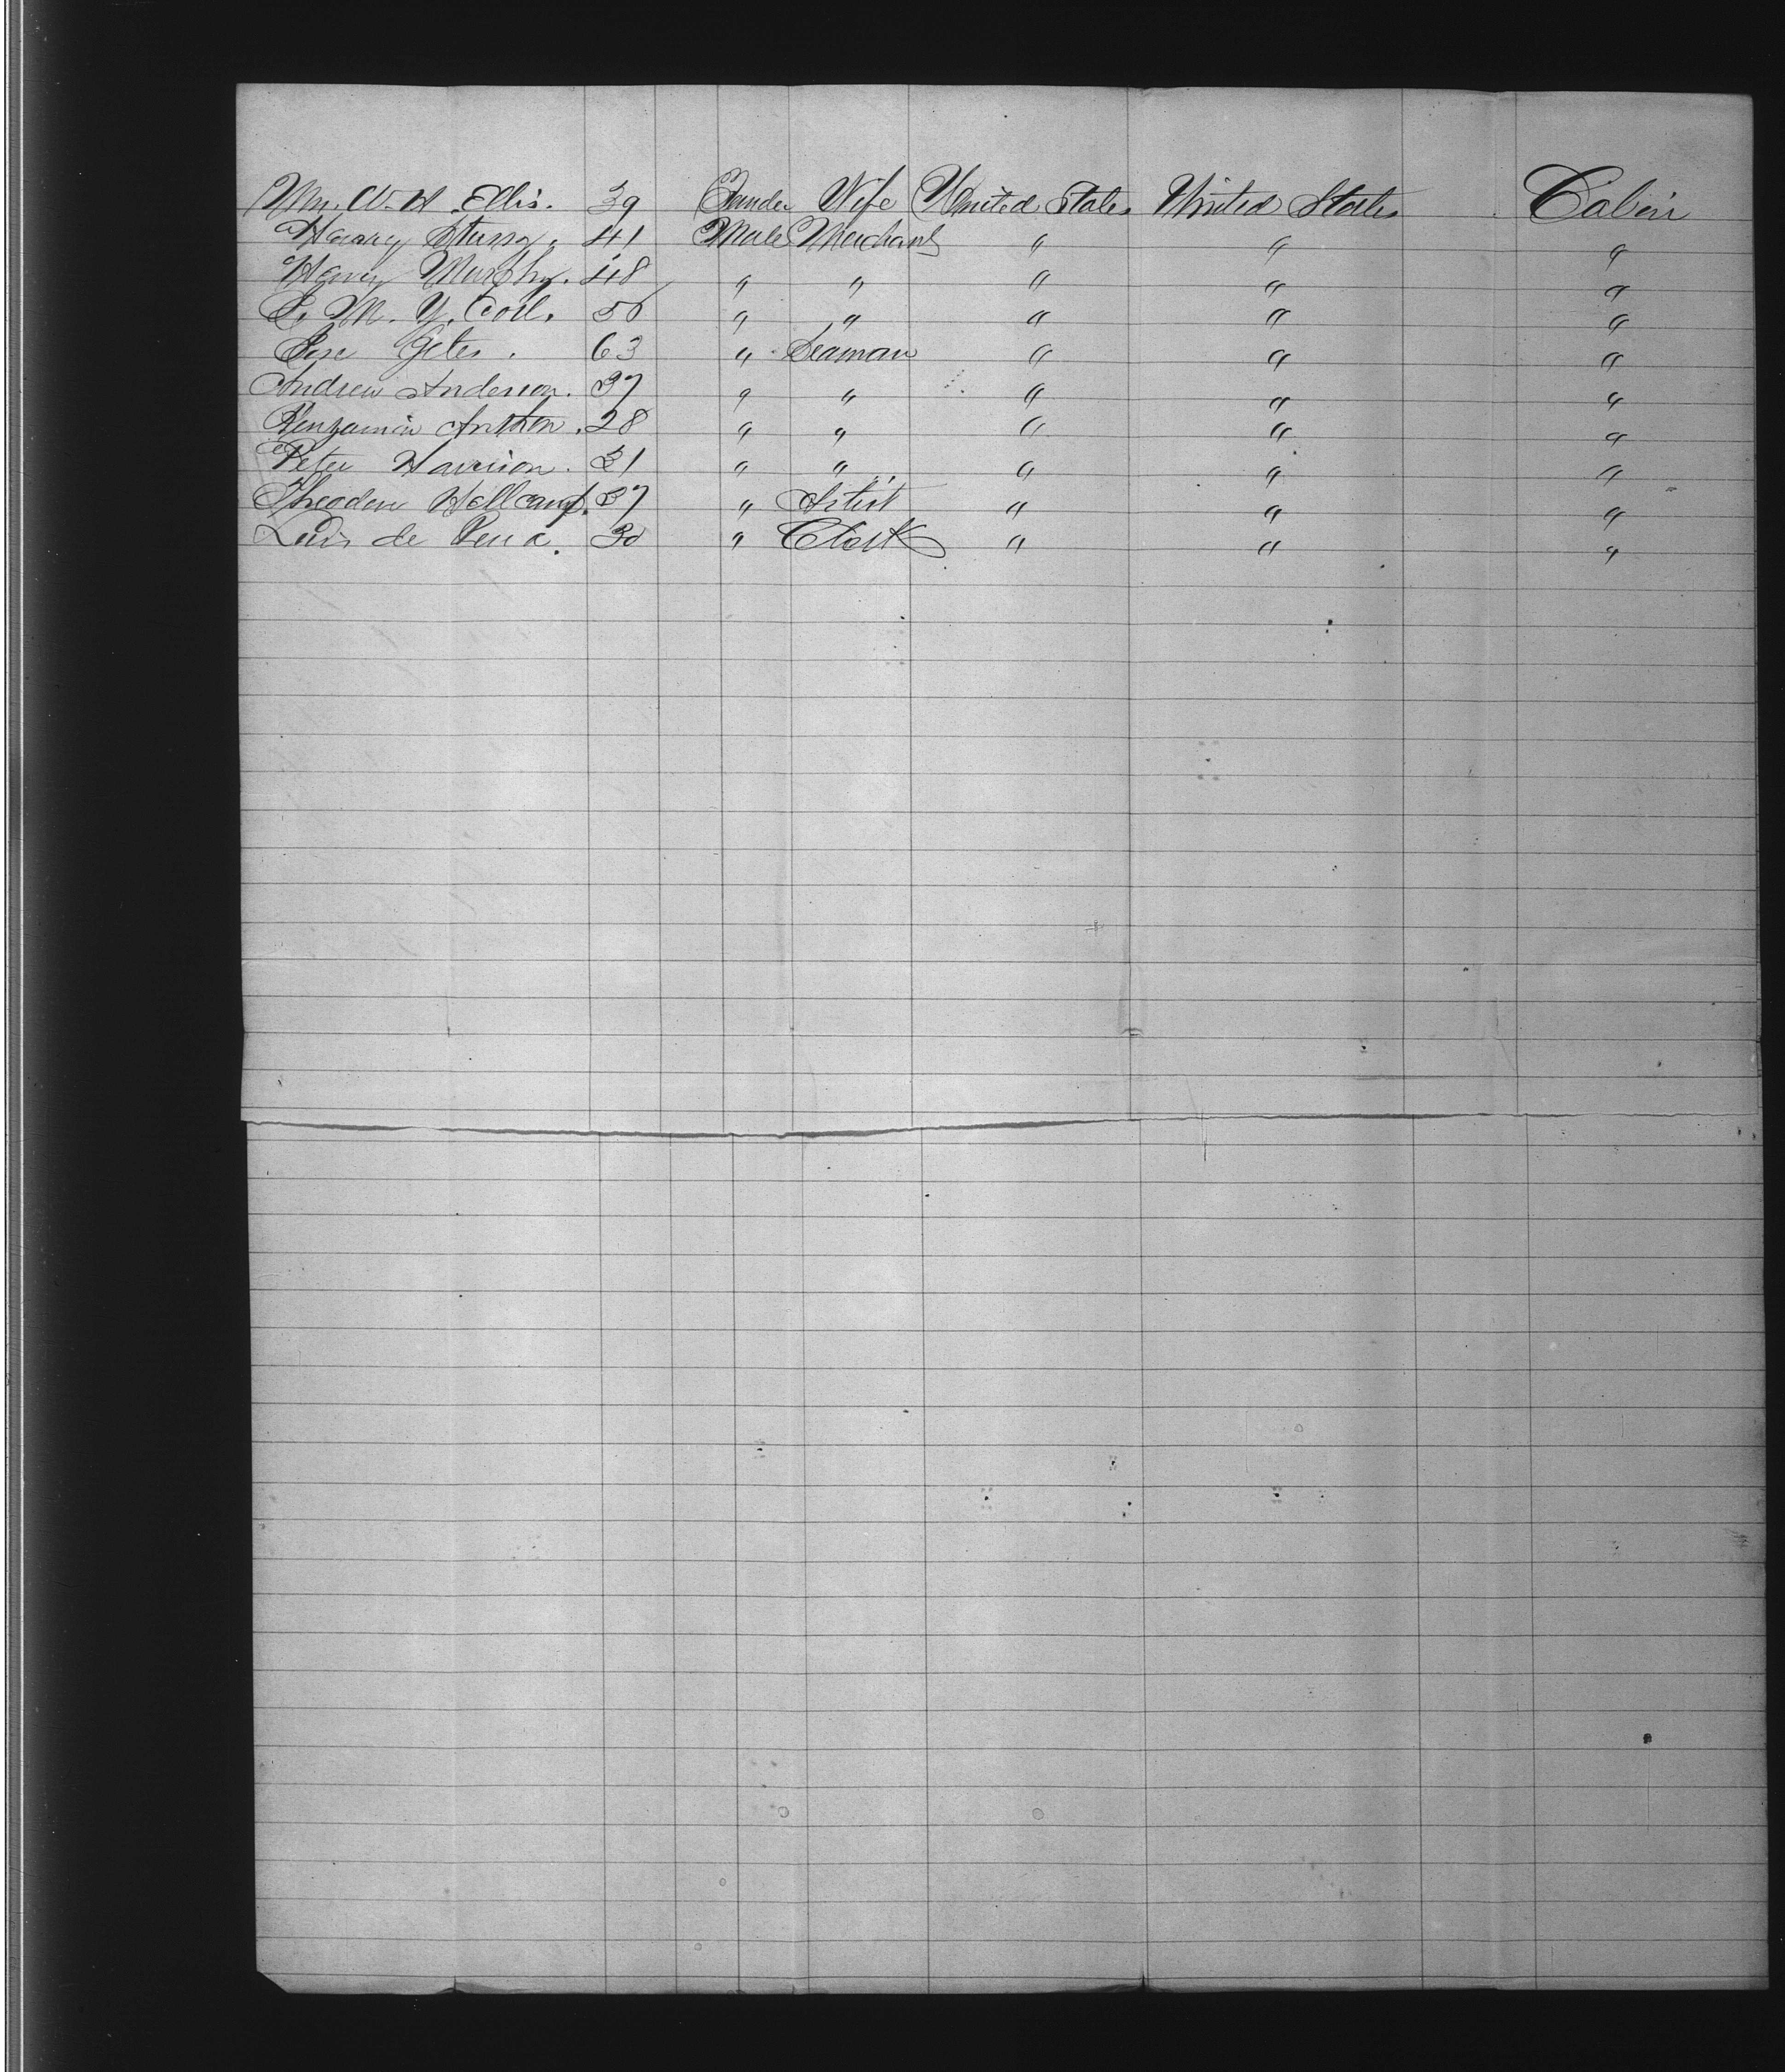 Mrs. W. H. Ellis. 39 Wife United States United States Cabin
Harry 41 Male Merchant " " "
Henry Murphy. 48 " " " " "
M. Y. 50 " " " " "
63 " Seaman " " "
Andrew Anderson. 37 " " " " "
Benjamin 28 " " " " "
Peter Harrison. 31 " " " " "
Theodore Hellcamp. 37 " Artist " " "
Luis de Pena. 30 " Clerk " " "